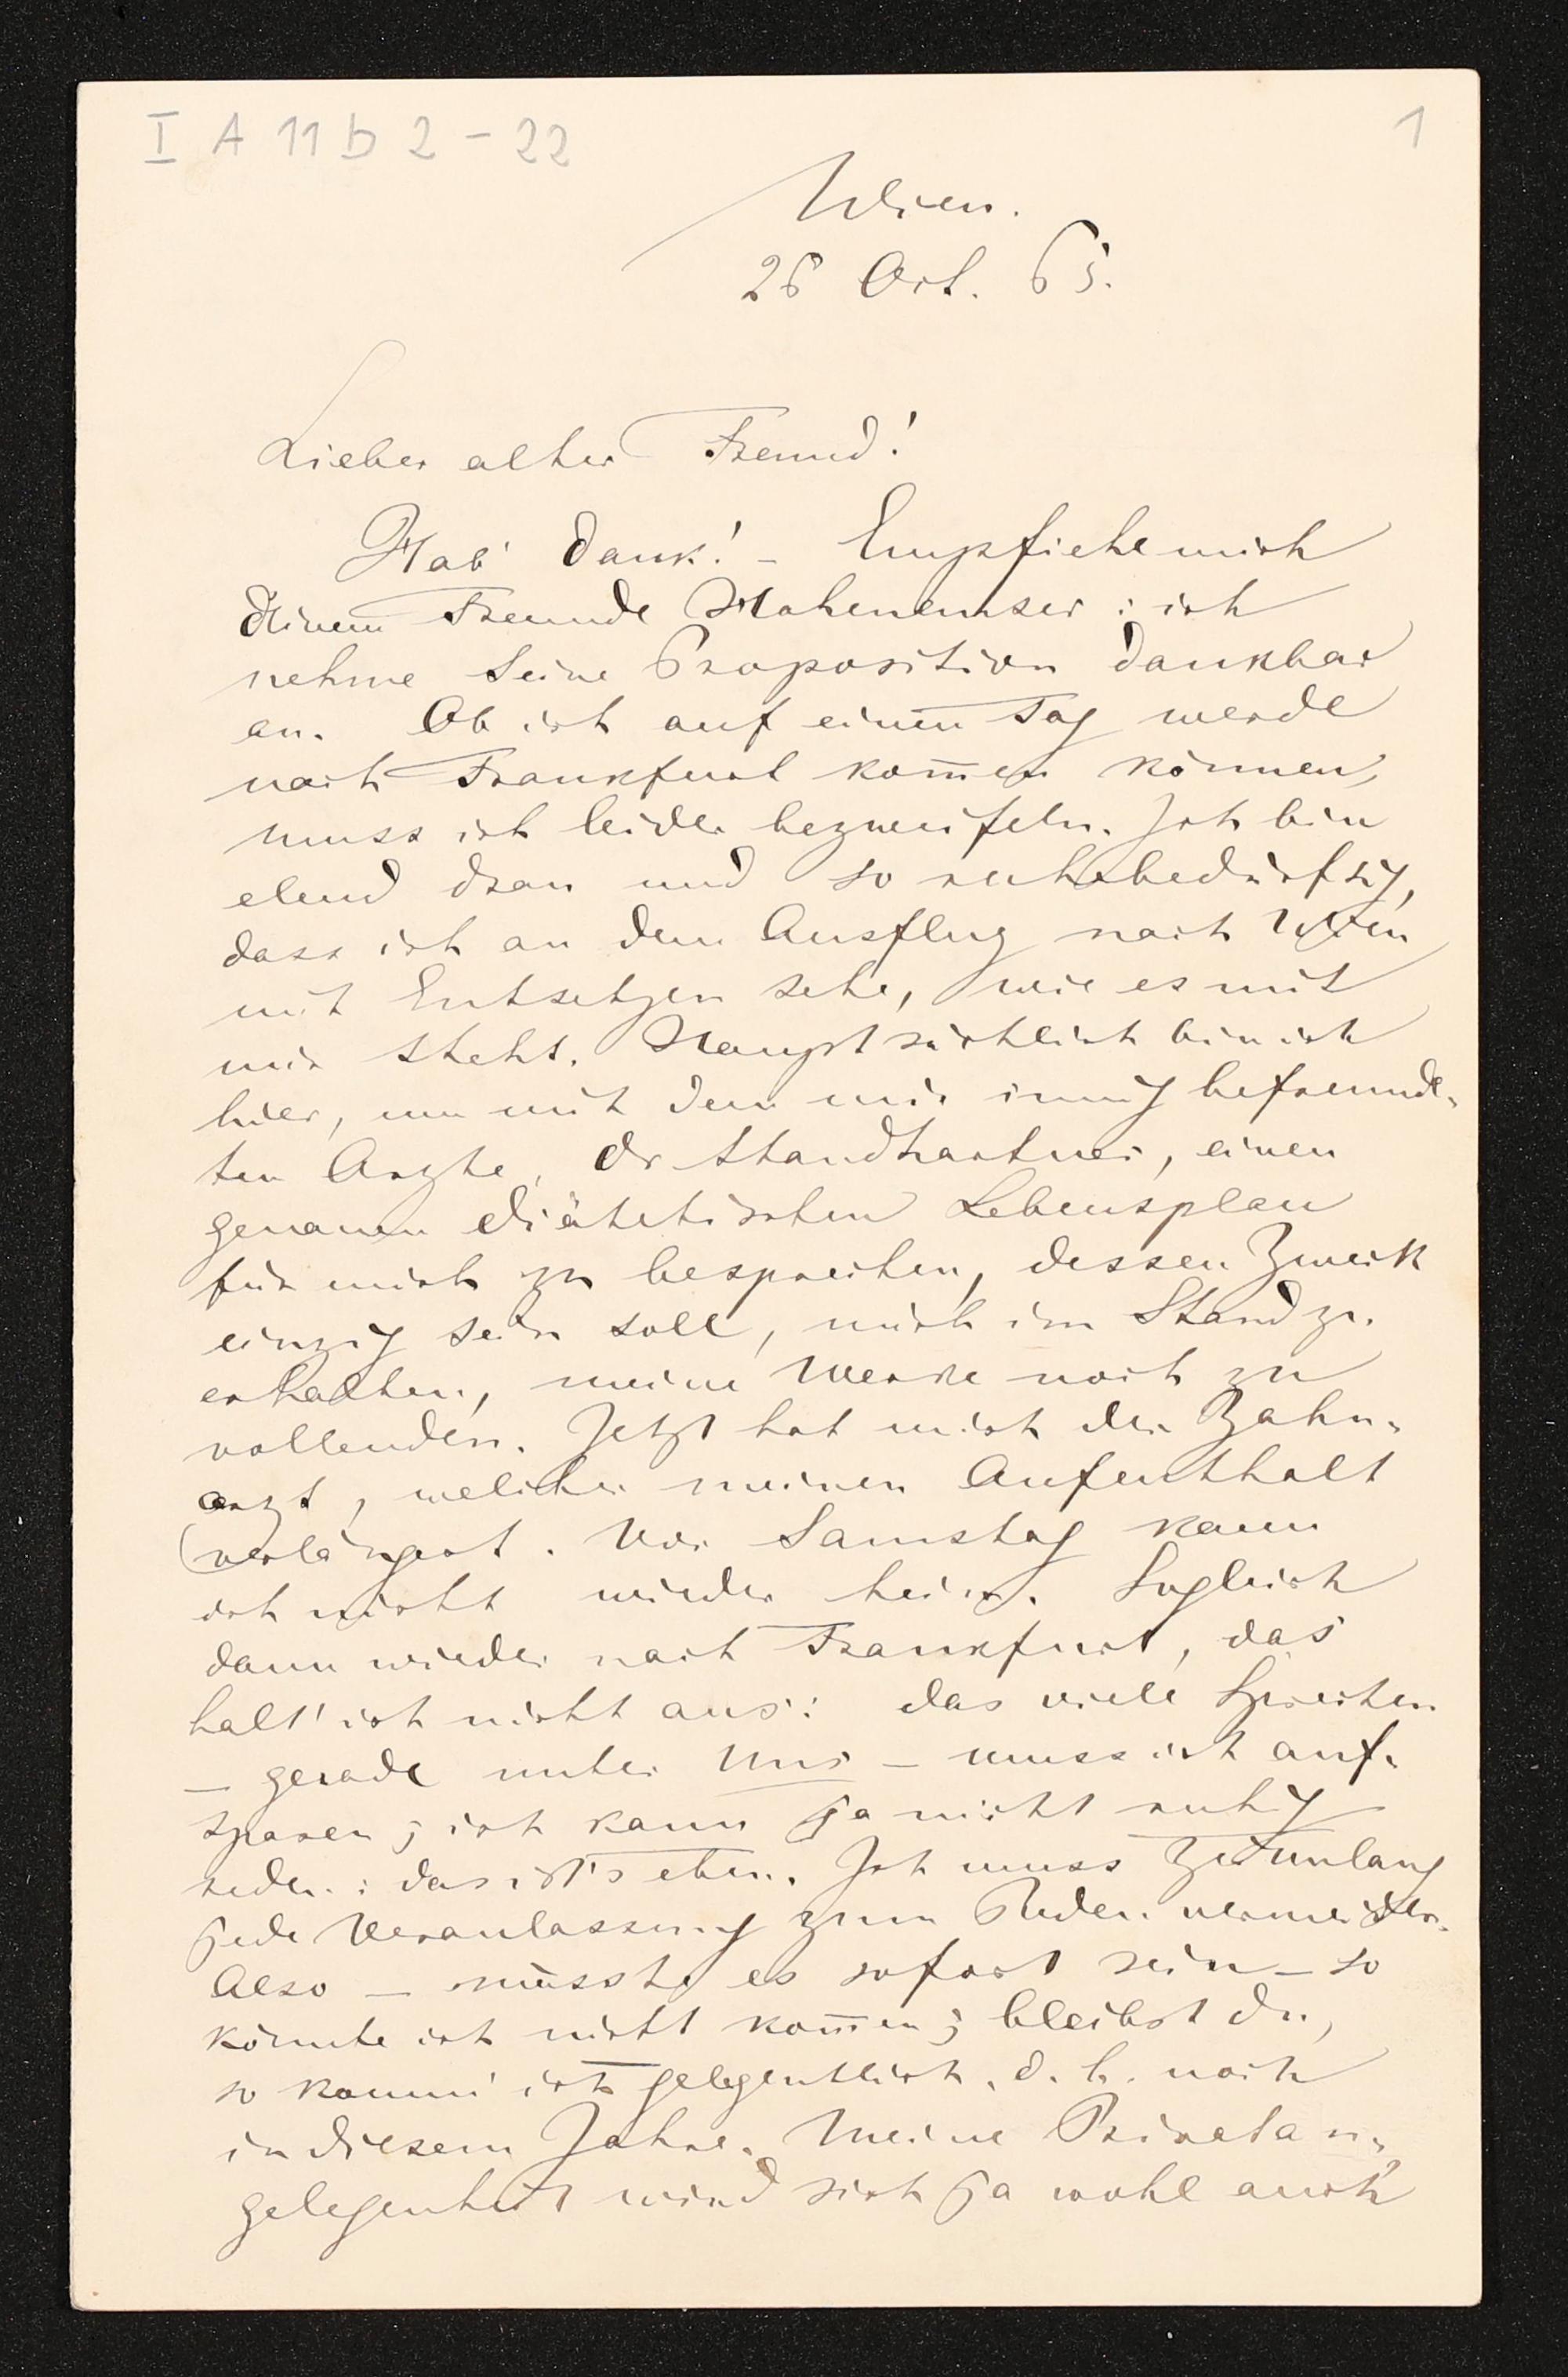 I A 11 b 2 - 22
1
Wien.
26 Oct. 65.
Lieber alter Freund!
Hab' Dank! - Empfiehl mich
deinem Freunde Hohenemser: ich
nehme seine Proposition dankbar
an. Ob ich auf einen Tag werde
nach Frankfurt kom̅en können,
muss ich leider bezweifeln. Ich bin
elend dran und so ruhebedürftig,
dass ich an dem Ausflug nach Wien
mit Entsetzen sehe, wie es mit
mir steht. Hauptsächlich bin ich
hier, um mit dem mir innig befreunde-
ten Arzte, Dr Standhartner, einen
genauen diätetischen Lebensplan
für mich zu besprechen, dessen Zweck
einzig sein soll, mich im Stand zu
erhalten, meine Werke noch zu
vollenden. Jetzt hat mich der Zahn-
arzt, welcher meinen Aufenthalt
verlängert. Vor Samstag kann
ich nicht wieder heim. Sogleich
dann wieder nach Frankfurt, das
halt' ich nicht aus: das viele Sprechen
- gerade unter uns - muss ich auf-
sparen; ich kann ja nicht ruhig
reden: das ist's eben. Ich muss Zeitenlang
jede Veranlassung zum Reden vermeiden.
Also - müsste es sofort sein - so
könnte ich nicht kom̅en; bleibst du,
so komm' ich gelegentlich, d. h. noch
in diesem Jahre. Meine Privatan-
gelegenheit wird sich ja wohl auch